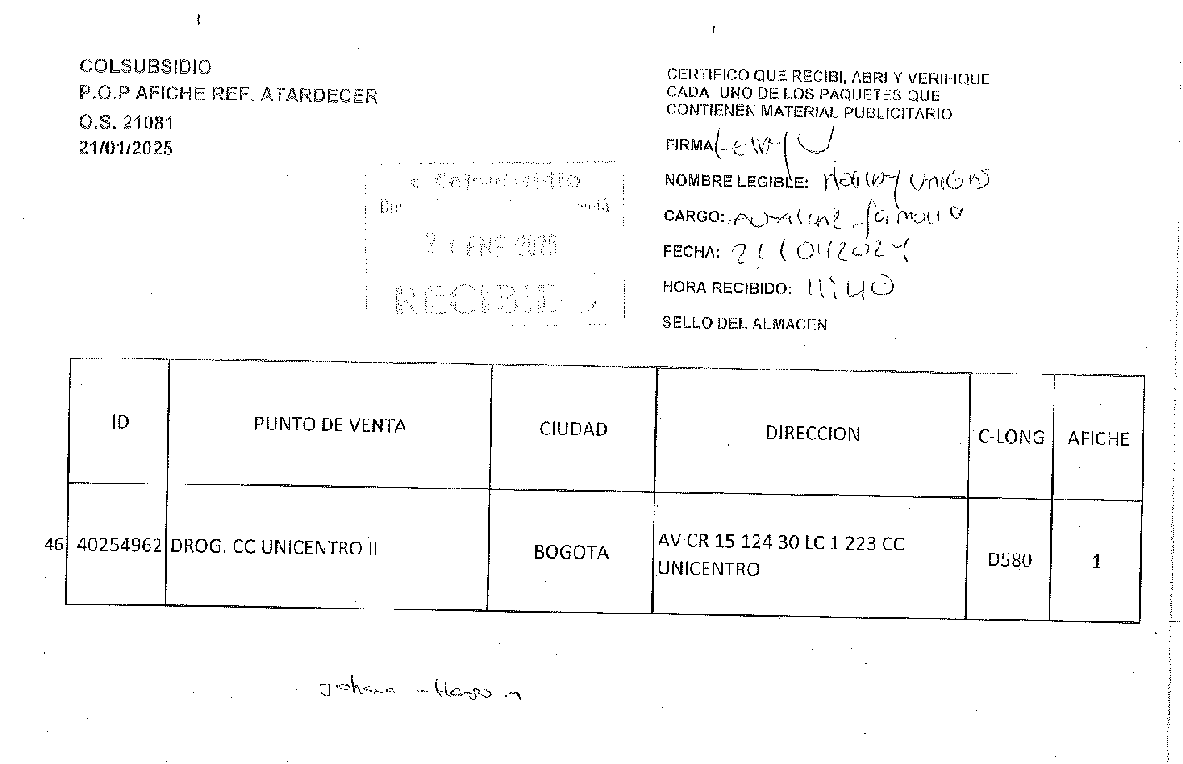 COLSUBSIDIO
P.O.P AFICHE REF. ATARDECER
O.S. 21081
21/01/2025
CERTIFICO QUE RECIBI, ABRI Y VERIFIQUE
CADA UNO DE LOS PAQUETES QUE
CONTIENEN MATERIAL PUBLICITARIO
FIRMA
NOMBRE LEGIBLE:
CARGO:
FECHA: 21/01/2024
HORA RECIBIDO: 11:40
SELLO DEL ALMACEN
Colsubsidio
ENE 2025
RECIBIDO
ID PUNTO DE VENTA CIUDAD DIRECCION C-LONG AFICHE
46 40254962 DROG. CC UNICENTRO II BOGOTA AV CR 15 124 30 LC 1 223 CC UNICENTRO D580 1